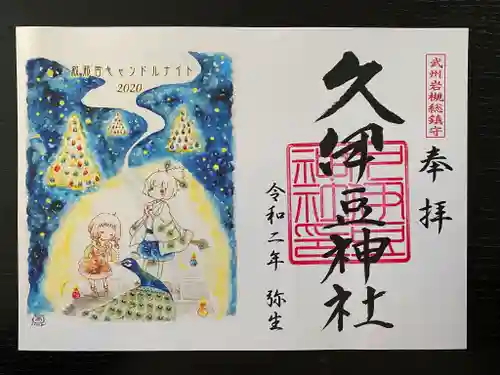 奉拝
武州岩槻総鎮守
久伊豆神社
令和二年 弥生
キャンドルナイト
2020